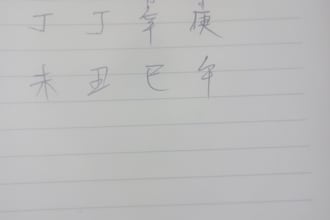 丁 丁 辛 庚
未 丑 巳 午